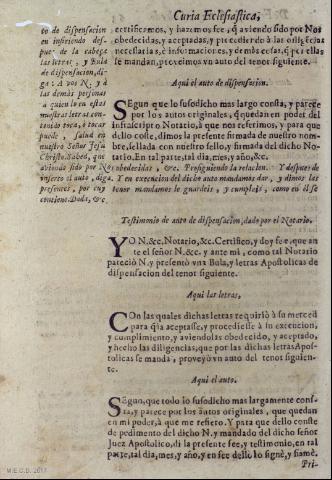 Curia Eclesiastica,
to de dispensacion
en insiriendo des-
pues de la cabeça
las letras, y Bula
de dispensacion, di-
ga: A vos N. y à
las demàs personas
à quien lo en estas
nuestras letras con-
tenido toca, ò tocar
puede, salud en
nuestro Señor Jesu
Christo. Sabed, que
aviendo sido por Nos
inserto el auto, diga.
presentes, por cuyo
contiene Dada, &c.
certificamos, y hazemos fee, q aviendo sido por Nos
obedecidas, y aceptadas, y procediendo à las diligencias
necessarias, è informaciones, y demàs cosas, q por ellas
se mandan, proveimos vn auto del tenor siguiente.
Aqui el auto de dispensacion.
SEgun que lo susodicho mas largo consta, y parece
por los autos originales, q quedan en poder del
infrascripto Notario, à que nos referimos, y para que
dello coste, dimos la presente firmada de nuestro nom-
bre, sellada con nuestro sello, y firmada del dicho No-
tario. En tal parte, tal dia, mes, y año, &c.
obedecidas, &c. Prosiguiendo la relacion. Y despues de
Y en execucion del dicho auto mandamos dar, y dimos las
tenor mandamos le guardeis, y cumplais, como en èl se
Testimonio de auto de dispensacion, dado por el Notario.
YO N. &c. Notario, &c. Certifico, y doy fee, que an-
te el señor N. &c. y ante mi, como tal Notario
pareciò N. y presentò vna Bula, y letras Apostolicas de
dispensacion del tenor siguiente.
Aqui las letras,
COn las quales dichas letras requiriò à su merced
para q̃ la aceptasse, y procediesse à su execucion,
y cumplimiento, y aviendolas obedecido, y aceptado,
y hecho las diligencias, que por las dichas letras Apos-
tolicas se manda, proveyò vn auto del tenor siguien-
te.
Aqui el auto.
SEgun, que todo lo susodicho mas largamente cons-
ta, y parece por los autos originales, que quedan
en mi poder, à que me refiero. Y para que dello conste
de pedimento del dicho N. y mandado del dicho señor
Juez Apostolico, di la presente fee, y testimonio, en tal
parte, tal dia, mes, y año, y en fee dello lo signè, y firmè.
Pri-
M.E.C.D. 2017